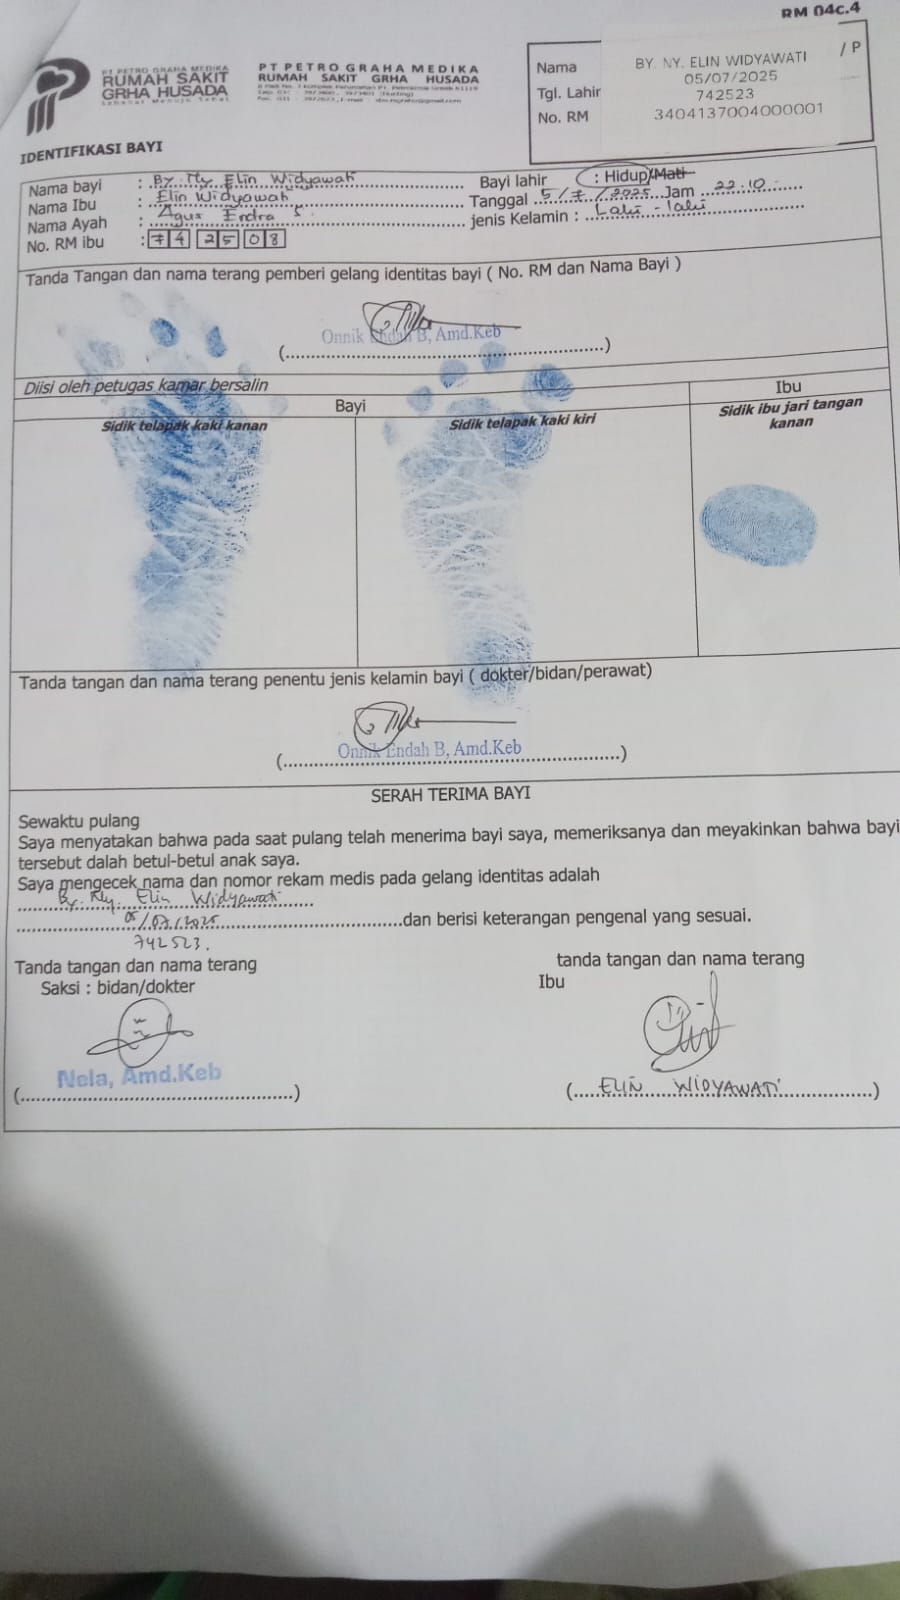 RM 04c.4
PT PETRO GRAHA MEDIKA
RUMAH SAKIT
GRHA HUSADA
Sahabat Menuju Sehat
PT PETRO GRAHA MEDIKA
RUMAH SAKIT GRHA HUSADA
Nama BY. NY. ELIN WIDYAWATI / P
Tgl. Lahir 05/07/2025
No. RM 742523
3404137004000001
IDENTIFIKASI BAYI
Nama bayi : By. Ny Elin Widyawati
Nama Ibu : Elin Widyawati
Nama Ayah : Agus Endra S.
No. RM ibu : 74 25 08
Bayi lahir : Hidup/Mati
Tanggal 5/7/2025 Jam 22.10
jenis Kelamin : Laki - laki
Tanda Tangan dan nama terang pemberi gelang identitas bayi ( No. RM dan Nama Bayi )
Onnik Endah B, Amd.Keb
(........................................................)
Diisi oleh petugas kamar bersalin
Bayi
Ibu
Sidik telapak kaki kanan
Sidik telapak kaki kiri
Sidik ibu jari tangan
kanan
Tanda tangan dan nama terang penentu jenis kelamin bayi ( dokter/bidan/perawat)
Onnik Endah B, Amd.Keb
(........................................................)
SERAH TERIMA BAYI
Sewaktu pulang
Saya menyatakan bahwa pada saat pulang telah menerima bayi saya, memeriksanya dan meyakinkan bahwa bayi
tersebut dalah betul-betul anak saya.
Saya mengecek nama dan nomor rekam medis pada gelang identitas adalah
By. Ny. Elin Widyawati
05/07/2025 dan berisi keterangan pengenal yang sesuai.
742523.
Tanda tangan dan nama terang
Saksi : bidan/dokter
Nela, Amd.Keb
(........................................................)
tanda tangan dan nama terang
Ibu
(....ELIN WIDYAWATI....)